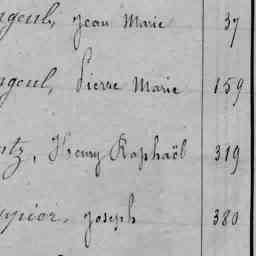 ngoul, Jean Marie 37
ngoul, Pierre Marie 159
ntz, Henry Raphaël 319
Joseph 380